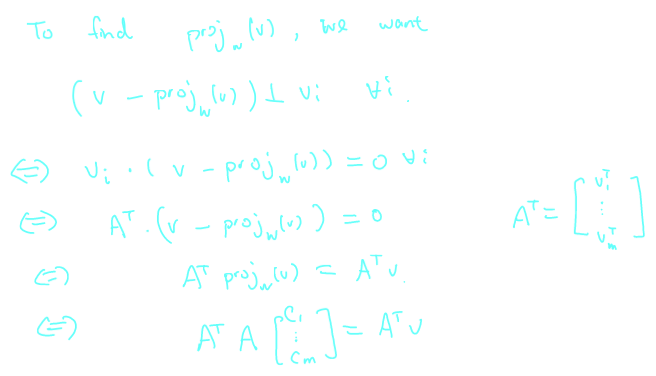 To find proj_w(v), we want
(v - proj_w(v)) ⊥ v_i ∀i.
⇔ v_i · (v - proj_w(v)) = 0 ∀i
⇔ A^T · (v - proj_w(v)) = 0
A^T = [v_1^T ⋮ v_m^T]
⇔ A^T proj_w(v) = A^T v.
⇔ A^T A [c_1 ⋮ c_m] = A^T v